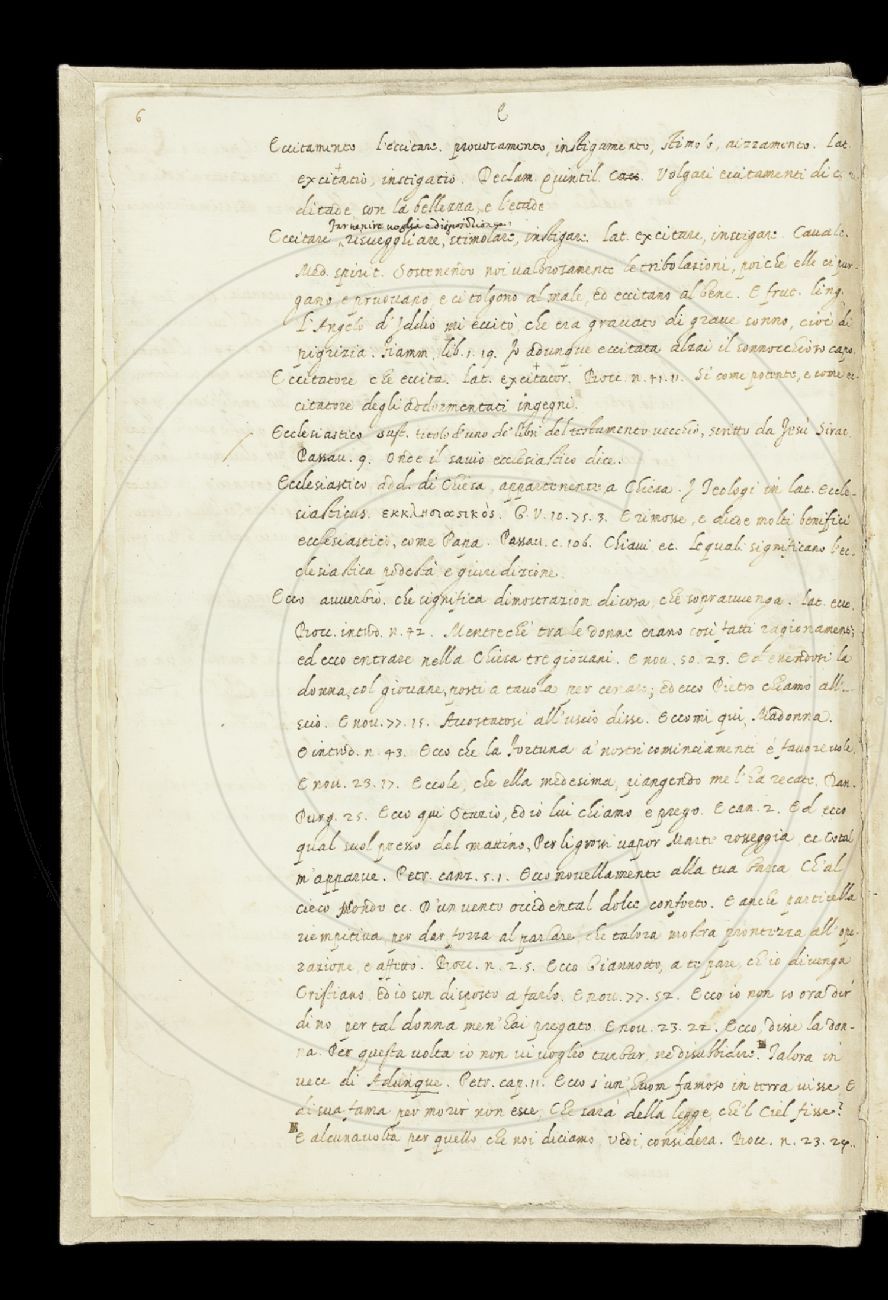 6
E
Eccitamento L'eccitare. provocamento, instigamento, stimolo, aizzamento. Lat.
excitatio, instigatio. Declam. Quintil. Volgari eccitamenti di
ditade son la bellezza, e l'etade
Far venire voglia e disposizione
Eccitare, risvegliare, stimolare, instigare. Lat. excitare, instigare. Cavalc.
Med. spirit. Sostenendo noi valorosamente le tribolazioni, poiche elle ci pur-
gano, e pruovano, e ci tolgono al male, ed eccitano al bene. E frut. ling.
L'Angelo d'Iddio mi eccitò, che era gravato di grave sonno, cioè di
pigrizia. Fiamm. lib. 1. 19. Io adunque eccitata alzai il sonnocchioso capo.
Eccitatore che eccita. Lat. excitator. Bocc. n. Si come potente, e come ec-
citatore degli addormentati ingegni.
Ecclesiastico sust. titolo d'uno de' libri del testamento vecchio, scritto da Jesù Sirac.
Passav. 9. Onde il savio ecclesiastico dice.
Ecclesiastico add. di Chiesa, appartenente a Chiesa. I Teologi in lat. eccle-
siasticus. εκκλησιασικὸς. G. V. 10. 75. 3. E rimosse, e diede molti benifici
ecclesiastici, come Papa. Passav. c. 106. Chiavi ec. Le quali significano l'ec-
clesiastica podestà e giuridizione.
Ecco avverbio. che significa dimostrazion di cosa, che sopravvenga. Lat. ecce.
Bocc. introd. n. 42. Mentre che tra le donne erano così fatti ragionamenti,
ed ecco entrare nella Chiesa tre giovani. E nov. 50. 23. Ed essendosi la
donna, col giovane, posti a tavola per cenare; ed ecco Pietro chiamò all'u-
scio. E nov. 77. 15. Accostatosi all'uscio disse. Eccomi qui, Madonna.
E introd. n. 43. Ecco che la fortuna a' nostri cominciamenti è favorevole.
E nov. 23. 17. Eccole, che ella medesima, piangendo me l'ha recate. Dan.
Purg. 25. Ecco qui Stazio, ed io lui chiamo e prego. E can. 2. Ed ecco
qual suol presso del mattino, Per li grossi vapor Marte rosseggia ec. Cotal
m'apparve. Petr. canz. 5. 1. Ecco novellamente alla tua barca Ch'al
cieco Mondo ec. D'un vento occidental dolce conforto. E anche particella
riempitiva per dar forza al parlare, che talora mostra prontezza all'ope-
razione, e affetto. Bocc. n. 2. 5. Ecco Giannotto, a te pare, ch'io divenga
Cristiano. Ed io son disposto a farlo. E nov. 77. 52. Ecco io non so ora dir
di no, per tal donna men'hai pregato. E nov. 23. 22. Ecco, disse la don-
na. Per questa volta io non vi voglio turbar, nè disubbidire. Talora in
vece di Adunque. Petr. cap. 11. Ecco s'un huom famoso in terra visse, E
di sua fama per morir non esce, Che sarà della legge, che'l Ciel fisse?
E alcuna volta per quello che noi diciamo, Vedi, considera. Bocc. n. 23.